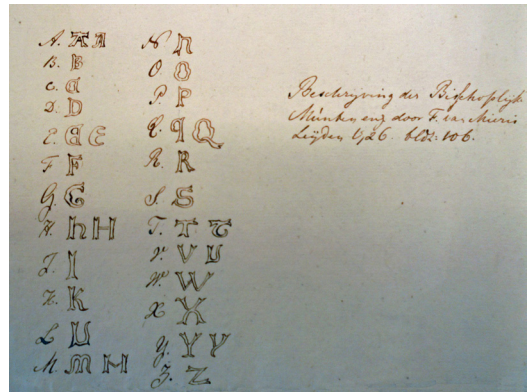 A. A A
B. B
C. C
D. D
E. E E
F. F
G. G
H. h H
J. I
K. K
L U
M. m M
N n
O. O
P. P
Q. q Q
R. R
S. S
T. T T
V. V U
W. W
X X
Y. Y Y
Z. Z
Beschrijving der Bisschoplyk
Münten enz door F. van Mieris
Leijden 1726. bldz: 106.